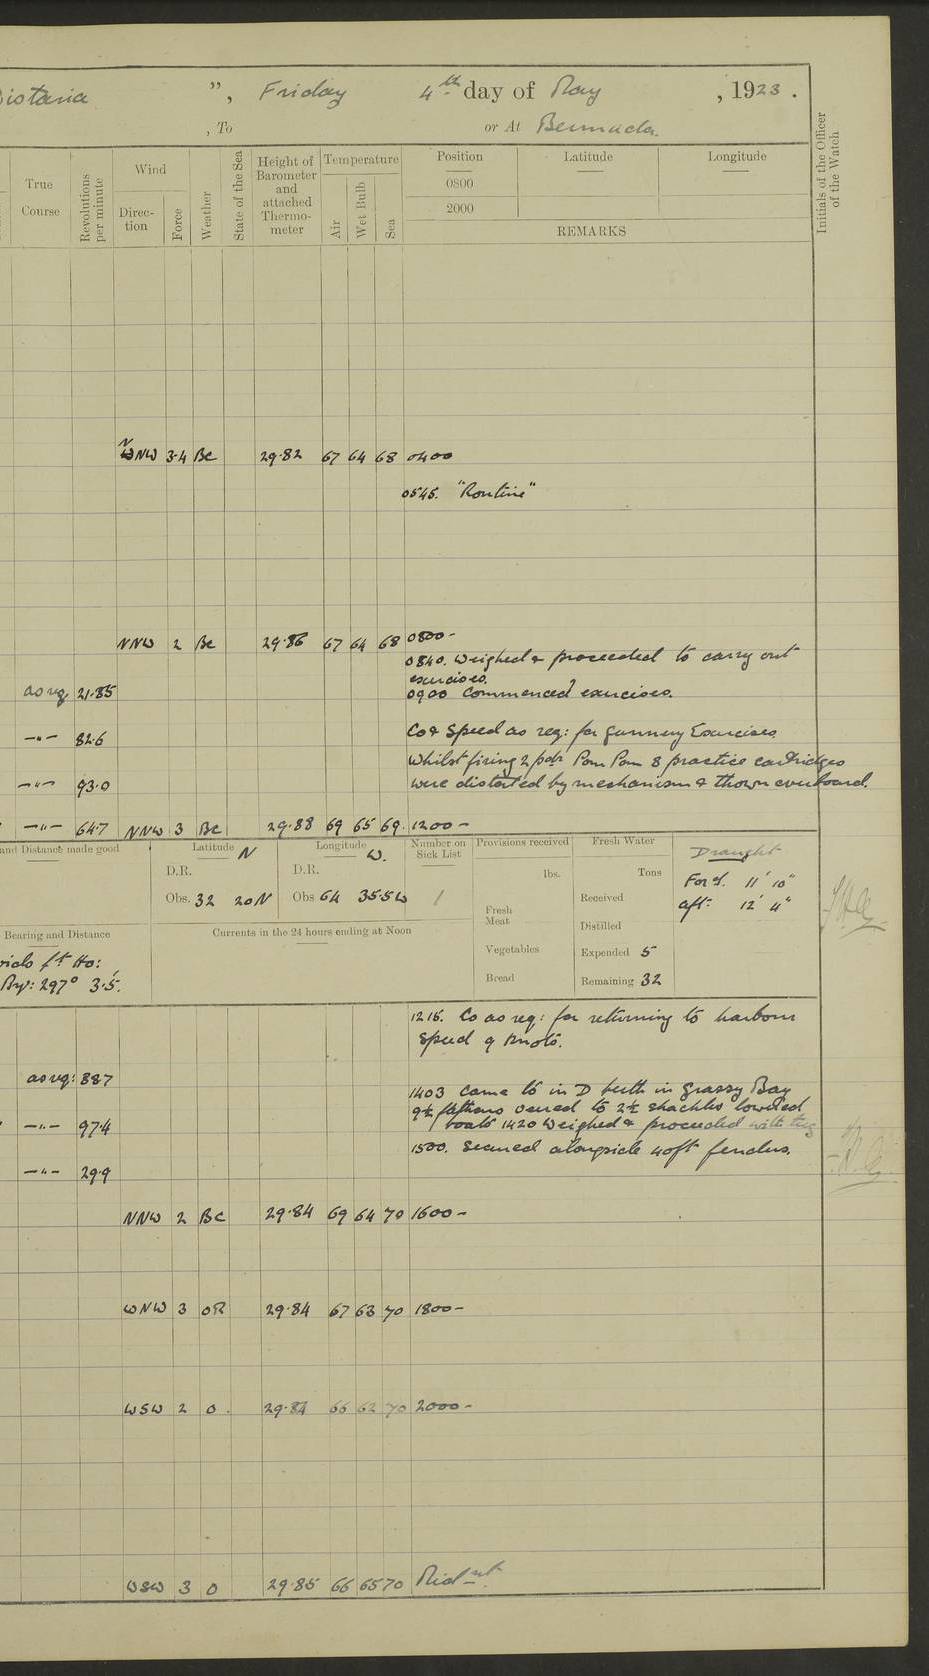 istaria ", Friday 4th day of May , 1923 .
, To or At Bermuda.
True Course
Revolutions per minute
Wind
Direction
Force
Weather
State of the Sea
Height of Barometer and attached Thermometer
Temperature
Air
Wet Bulb
Sea
Position Latitude Longitude
0800
2000
REMARKS
Initials of the Officer of the Watch
NNW 3.4 Bc 29.82 67 64 68 0400
0545. "Routine"
NNW 2 Bc 29.86 67 64 68 0800-
0840. Weighed & proceeded to carry out
exercises.
as req 21.85 0900 Commenced exercises.
-"- 82.6 Co & Speed as req: for Gunnery Exercises
Whilst firing 2 pdr Pom Pom 8 practice cartridges
-"- 93.0 were distorted by mechanism & thrown overboard.
-"- 64.7 NNW 3 Bc 29.88 69 65 69. 1200-
and Distance made good
Latitude N
D.R.
Obs. 32 20N
Longitude W.
D.R.
Obs 64 35.5W
Number on Sick List
1
Provisions received
lbs.
Fresh Meat
Vegetables
Bread
Fresh Water
Tons
Received
Distilled
Expended 5
Remaining 32
Draught
For'd. 11' 10"
aft: 12' 4"
Bearing and Distance
ft Ho:
297° 3.5.
Currents in the 24 hours ending at Noon
1215. Co as req: for returning to harbour
Speed 9 knots.
as req: 887
1403 Came to in D berth in Grassy Bay
9½ fathoms veered to 2½ shackles lowered
-"- 97.4 boats 1420 Weighed & proceeded with tug
1500. Secured alongside 40ft fenders.
-"- 29.9
NNW 2 BC 29.84 69 64 70 1600-
WNW 3 OR 29.84 67 63 70 1800-
WSW 2 O. 29.84 66 62 70 2000-
WSW 3 O 29.85 66 65 70 Midnt.